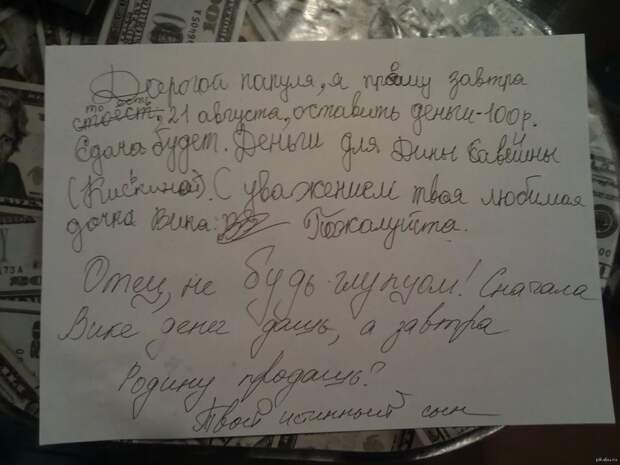 Дорогой папуля, я прошу завтра
то есть 21 августа, оставить деньги-100р.
Сдача будет. Деньги для Дины Савейны
(Кискиной). С уважением твоя любимая
дочка Вика. Пожалуйста.
Отец, не будь глупцом! Сначала
Вике денег дашь, а завтра
Родину продашь?
Твой истинный сын